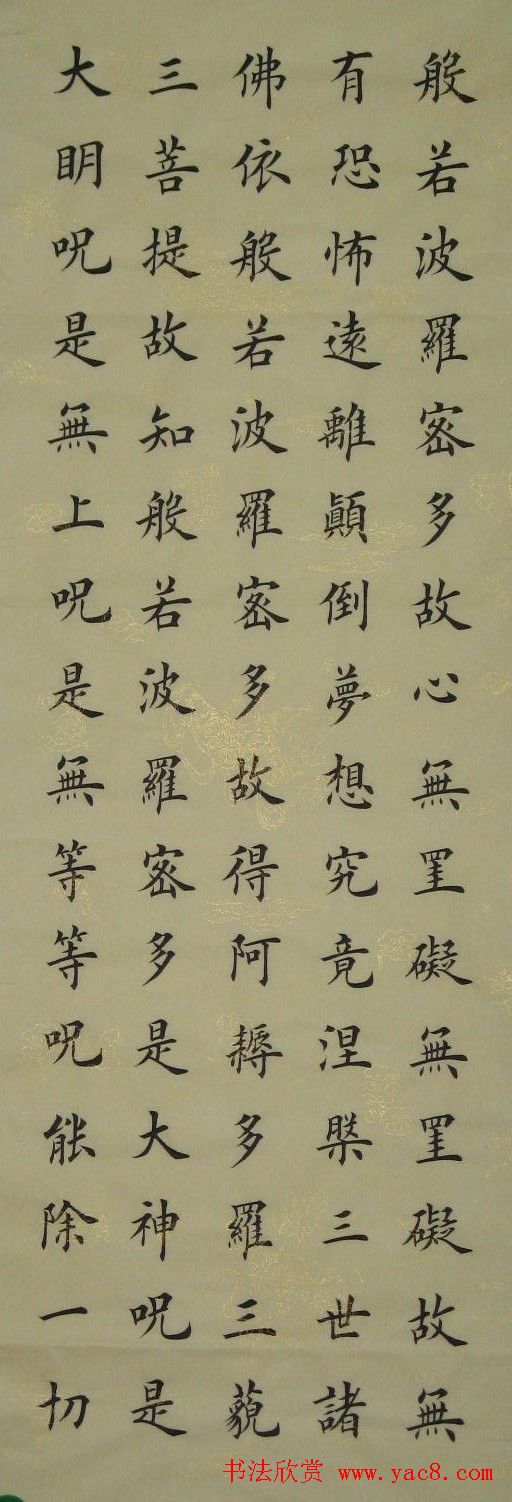 般若波羅密多故心無罣礙無罣礙故無
有恐怖遠離顛倒夢想究竟涅槃三世諸
佛依般若波羅密多故得阿耨多羅三藐
三菩提故知般若波羅密多是大神呪是
大明呪是無上呪是無等等呪能除一切
书法欣赏 www.yac8.com